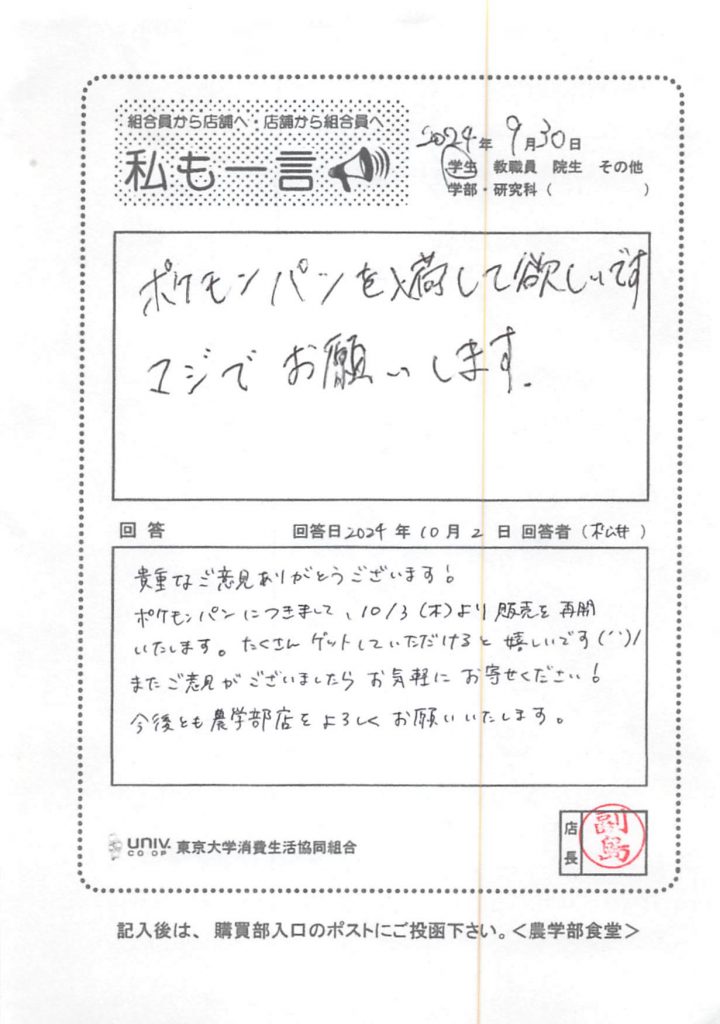 組合員から店舗へ・店舗から組合員へ
私も一言
2024年 9月30日
学生 教職員 院生 その他
学部・研究科（　　　　　　）
ポケモンパンを入荷して欲しいです
マジでお願いします.
回答 回答日2024年10月2日 回答者（松井）
貴重なご意見ありがとうございます!
ポケモンパンにつきまして、10/3(木)より販売を再開
いたします。たくさんゲットしていただけると嬉しいです(^^)/
またご意見がございましたらお気軽にお寄せください!
今後とも農学部店をよろしくお願いいたします。
UNIV. CO-OP 東京大学消費生活協同組合
店長 副島
記入後は、購買部入口のポストにご投函下さい。＜農学部食堂＞